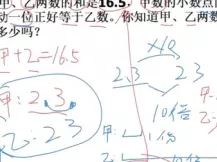 甲、乙两数的和是16.5,甲数的小数点
动一位正好等于乙数。你知道甲、乙两数
多少吗?
甲+乙=16.5
×10
2.3 23
甲:2.3
10倍
乙:23
甲: 1份
乙: 10倍